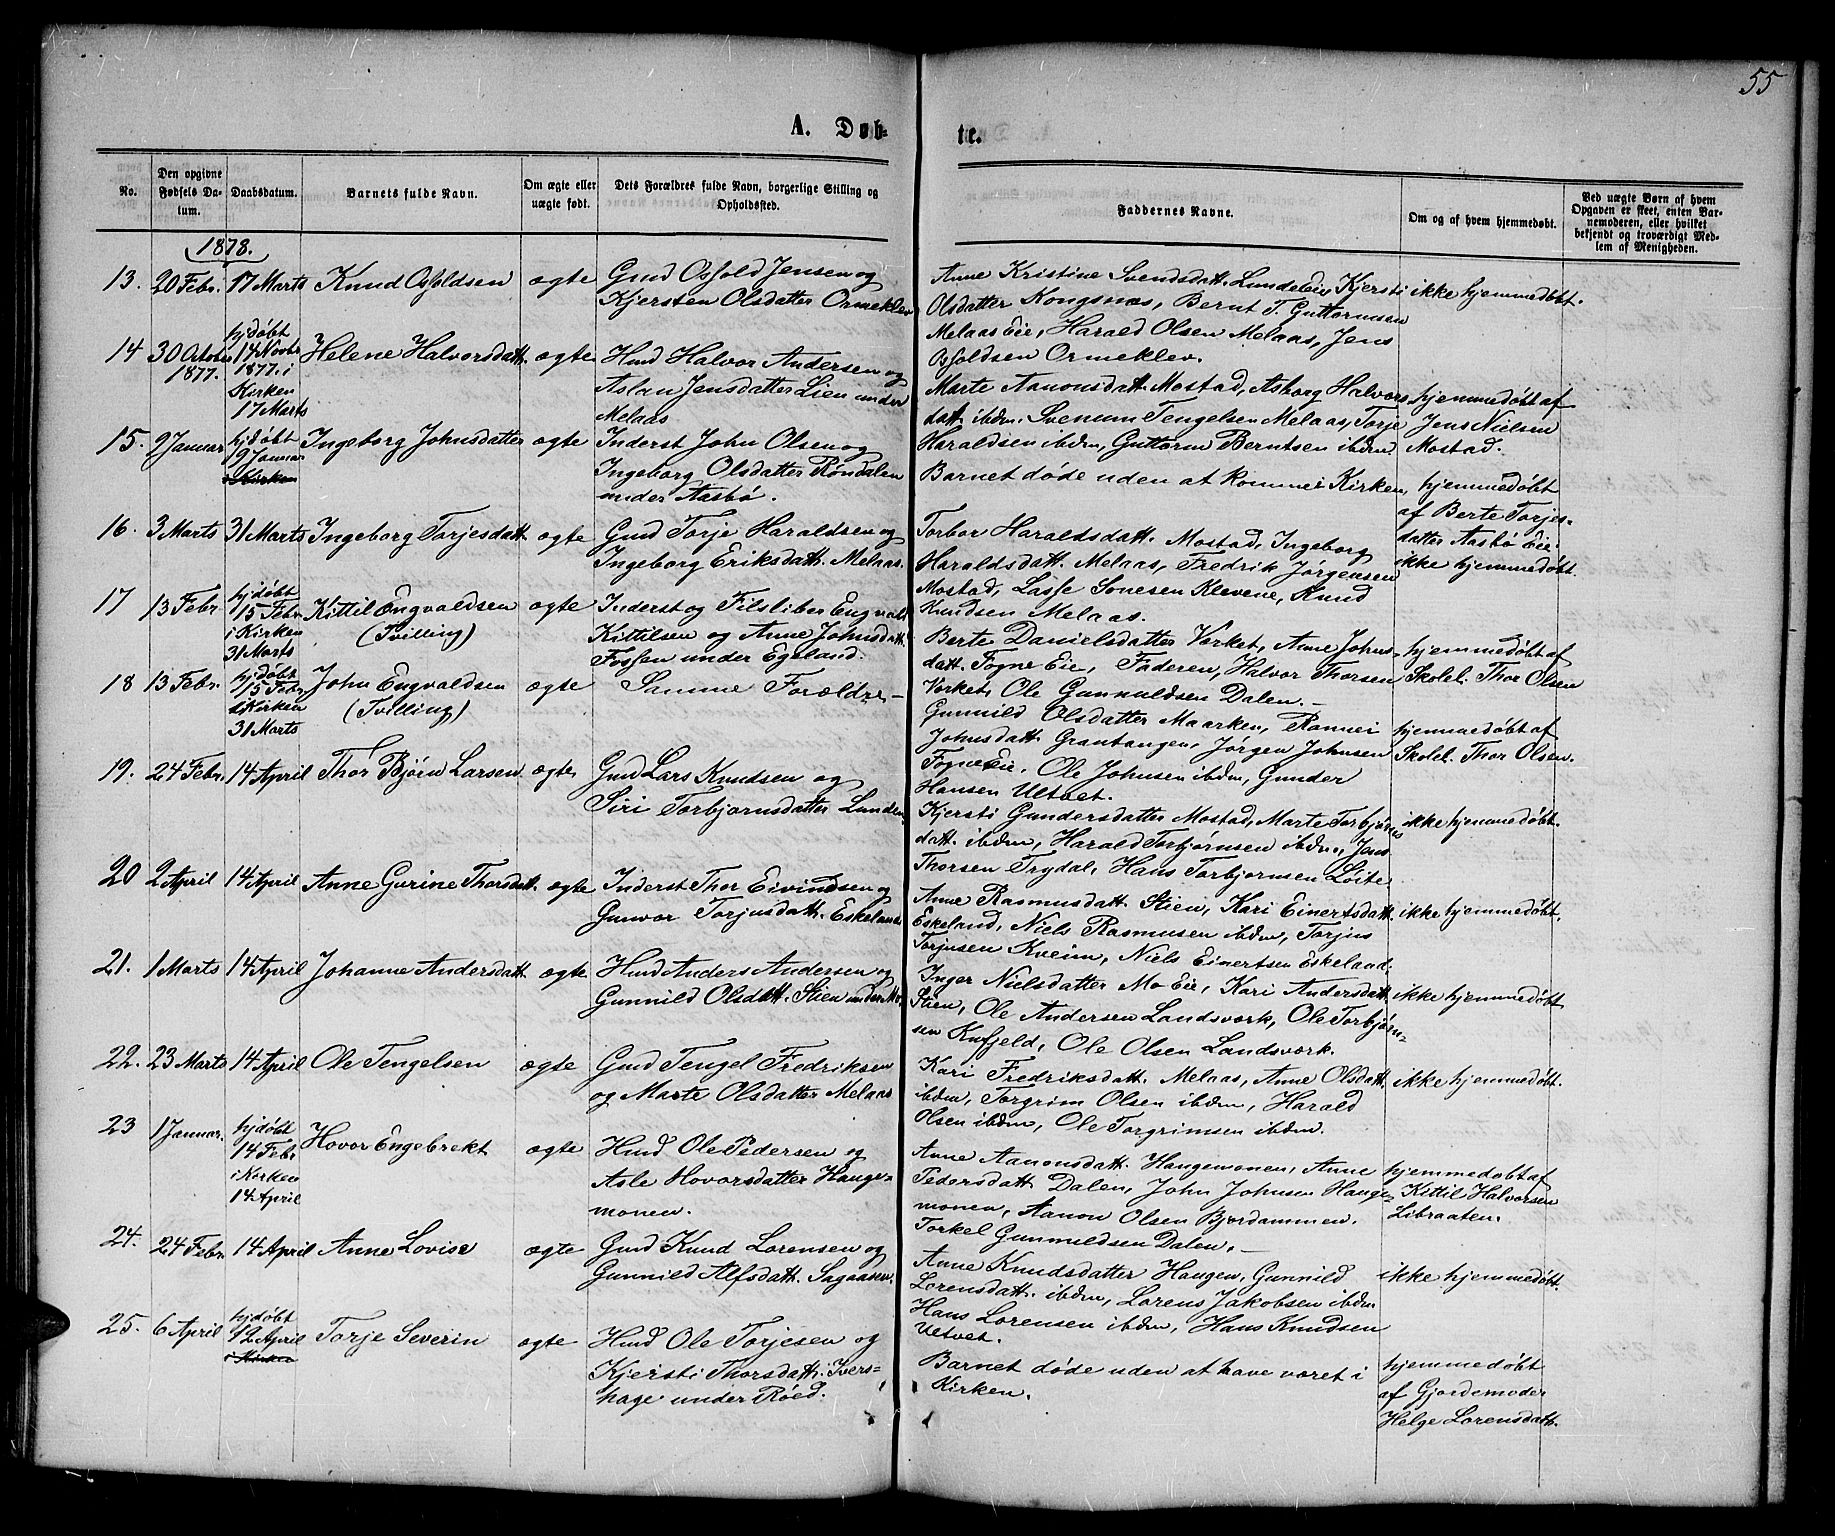 55
A. Døb-
te.
No.
Den opgivne Fødsels Da-tum.
Daabsdatum.
Barnets fulde Navn.
Om ægte eller uægte født.
Dets Forældres fulde Navn, borgerlige Stilling og Opholdssted.
Faddernes Navne.
Om og af hvem hjemmedøbt.
Ved uægte Børn af hvem Opgaven er skeet, enten Bar-nemoderen, eller hvilket bekjendt og troværdigt Med-lem af Menigheden.
1878.
13. 20 Febr. 17 Marts Knud Osfoldsen ægte
Gmd Osfold Jensen og
Kjersten Olsdatter Ormeklev
Anne Kristine Svendsdatt. Lundeeie, Kjersti
Olsdatter Kongsnæs, Bernt T. Guttormsen
Melaas Eie, Harald Olsen Melaas, Jens
Osfoldsen Ormeklev.
ikke hjemmedøbt.
14 30 October 1877.
hjdøbt
14 Novbr
1877. i
Kirken
17 Marts
Helene Halvorsdatt. ægte
Hmd Halvor Andersen og
Aslau Jensdatter Lien under
Melaas
Marte Aanonsdatt. Mostad, Asborg Halvors
datt. ibdm, Svenum Tengelsen Melaas, Torje
Haraldsen ibdm, Guttorm Berntsen ibdm
hjemmedøbt af
Jens Nielsen
Mostad.
15. 9 Januar
hjdøbt
9 Januar
i Kirken
Ingeborg Johnsdatter ægte
Inderst John Olsen og
Ingeborg Olsdatter Røndalen
under Aasbø.
Barnet døde uden at komme i Kirken,
hjemmedøbt
af Berte Torjes-
datter Aasbø Eie.
16. 3 Marts 31 Marts Ingeborg Torjesdatt. ægte
Gmd Torje Haraldsen og
Ingeborg Eriksdatt. Melaas.
Torbor Haraldsdatt. Mostad, Ingeborg
Haraldsdatt. Melaas, Fredrik Jørgensen
Mostad, Lasse Sonesen Klevene, Knud
Knudsen Melaas.
ikke hjemmedøbt.
17 13 Febr.
hjdøbt
15 Febr.
i Kirken
31 Marts
Kittil Engvaldsen
(Tvilling)
ægte
Inderst og Filsliber Engvald
Kittilsen og Anne Johnsdatt.
Fossen under Egeland.
Berte Danielsdatter Værket, Anne Johns-
datt. Fogne Eie, Faderen, Halvor Thorsen
Værket, Ole Gunnuldsen Dalen.
hjemmedøbt af
Skolel. Thor Olsen
18 13 Febr.
hjdøbt
15 Febr
i Kirken
31 Marts
John Engvaldsen
(Tvilling)
ægte
Samme Forældre
Gunnild Olsdatter Maarken, Rannei
Johnsdatt. Grantangen, Jørgen Johnsen
Fogne Eie, Ole Johnsen ibdm, Gunder
Hansen Ultvet.
hjemmedøbt af
Skolel. Thor Olsen.
19. 24 Febr. 14 April Thor Bjørn Larsen ægte
Gmd Lars Knudsen og
Siri Torbjørnsdatter Lunden.
Kjersti Gundersdatter Mostad, Marte Torbjørns
datt. ibdm, Harald Torbjørnsen ibdm, Jens
Thorsen Trydal, Hans Torbjørnsen Løite
ikke hjemmedøbt.
20 2 April 14 April Anne Gurine Thorsdatt. ægte
Inderst Thor Eivindsen og
Gunvor Torjusdatt. Eskeland
Anne Rasmusdatt. Stien, Kari Einertsdatt.
Eskeland, Niels Rasmusen ibdm, Torjus
Torjusen Kveim, Niels Einertsen Eskeland.
ikke hjemmedøbt.
21. 1 Marts 14 April Johanne Andersdatt. ægte
Hmd Anders Andersen og
Gunnild Olsdatt. Stien under Mo.
Inger Nielsdatter Mo Eie, Kari Andersdatt.
Stien, Ole Andersen Landsværk, Ole Torbjørn-
sen Kufjeld, Ole Olsen Landsværk.
ikke hjemmedøbt
22. 23 Marts 14 April Ole Tengelsen ægte
Gmd Tengel Fredriksen
og Marte Olsdatter Melaas
Kari Fredriksdatt. Melaas, Anne Olsdatt.
ibdm, Torgrim Olsen ibdm, Harald
Olsen ibdm, Ole Torgrimsen ibdm.
ikke hjemmedøbt.
23 1 Januar.
hjdøbt
14 Febr
i Kirken
14 April
Hovor Engebrekt ægte
Hmd Ole Pedersen og
Asle Hovorsdatter Hauge-
monen.
Anne Aanonsdatt. Haugemonen, Anne
Pedersdatt. Dalen, John Johnsen Hauge-
monen, Aanon Olsen Bjordammen.
Torkel Gunnuldsen Dalen.
hjemmedøbt af
Kittil Halvorsen
Libraaten.
24. 24 Febr 14 April Anne Lovise ægte
Gmd Knud Lorensen og
Gunnild Alfsdatt. Sagaasen.
Anne Knudsdatter Haugen, Gunnild
Lorensdatt. ibdm, Lorens Jakobsen ibdm
Hans Lorensen ibdm, Hans Knudsen
Ultvet.
ikke hjemmedøbt.
25. 6 April
hjdøbt
12 April
i Kirken
Torje Severin ægte
Hmd Ole Torjesen og
Kjersti Thorsdatt. Ivers-
hage under Røed.
Barnet døde uden at have været i
Kirken.
hjemmedøbt
af Gjordemoder
Helge Lorensdatt.